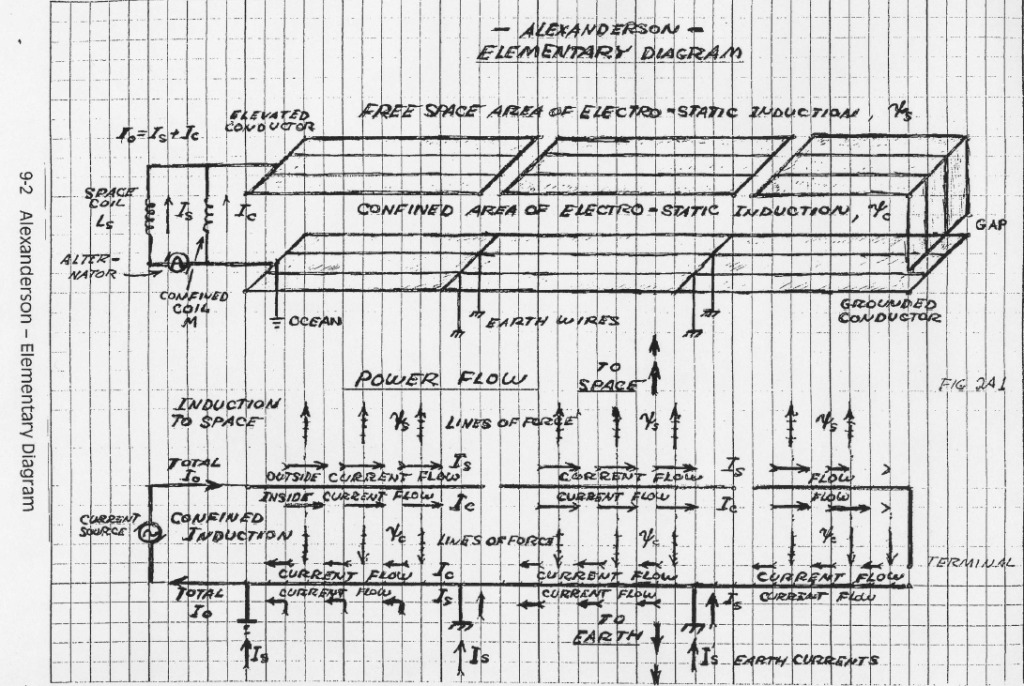 - ALEXANDERSON -
ELEMENTARY DIAGRAM
FREE SPACE AREA OF ELECTRO-STATIC INDUCTION, ψs
ELEVATED
CONDUCTOR
I₀=Is+Ic
SPACE
COIL
Ls
Is
Ic
CONFINED AREA OF ELECTRO-STATIC INDUCTION, ψc
GAP
ALTER-
NATOR
CONFINED
COIL
M
OCEAN
EARTH WIRES
GROUNDED
CONDUCTOR
9-2 Alexanderson – Elementary Diagram
POWER FLOW
TO
SPACE
FIG 2A1
INDUCTION
TO SPACE
ψs
LINES OF FORCE
ψs
ψs
TOTAL
I₀
OUTSIDE CURRENT FLOW Is
CURRENT FLOW Is
FLOW
INSIDE CURRENT FLOW Ic
CURRENT FLOW Ic
FLOW
CURRENT
SOURCE
CONFINED
INDUCTION
ψc
LINES OF FORCE
ψc
ψc
TERMINAL
CURRENT FLOW Ic
CURRENT FLOW
CURRENT FLOW
TOTAL
I₀
CURRENT FLOW Is
CURRENT FLOW Is
CURRENT FLOW
TO
EARTH
Is
Is
Is EARTH CURRENTS